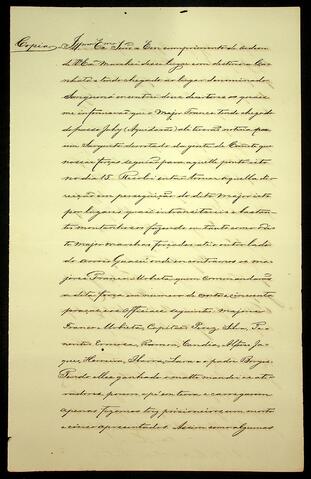 Copia. Illmo Exmo Senr. Em cumprimento de ordem
de V Exa Marchei desse lugar com destino a Cor
e tendo chegado ao lugar denominado
encontrei desertores os quaes
me informavão que o Major Franco tendo chegado
do passo Joby (Aquidavão) ali teve a noticia por
um Sargento derrotado da gente de Canuto que
nossas forças seguião para aquelle ponto isto
no dia 15. Resolvi então tomar aquella di
recção em perseguição do dito Major isto
por lugares quasi intransitaveis e bastan
tes montanhosos fazendo em tanto como o di
to major marchas forçadas até o outro lado
do arroio Guaçú onde encontramos os ma
jores Franco e Urbieta quem commandavão
a dita força em numero de cento e cincoenta
praças e os Officiaes seguintes, majores
Franco e Urbieta, Capitães Perez, Silva, Te
nentes Correa, Ramon, Candia, Alfes Ja
ques, Herreira, Lara e o padre Borges.
Tendo elles ganhado o matto mandei os ati
radores porem a pé entrar e carregarem
apenas fizemos trez prisioneiros um morto
e cinco apresentados. Assim como algumas